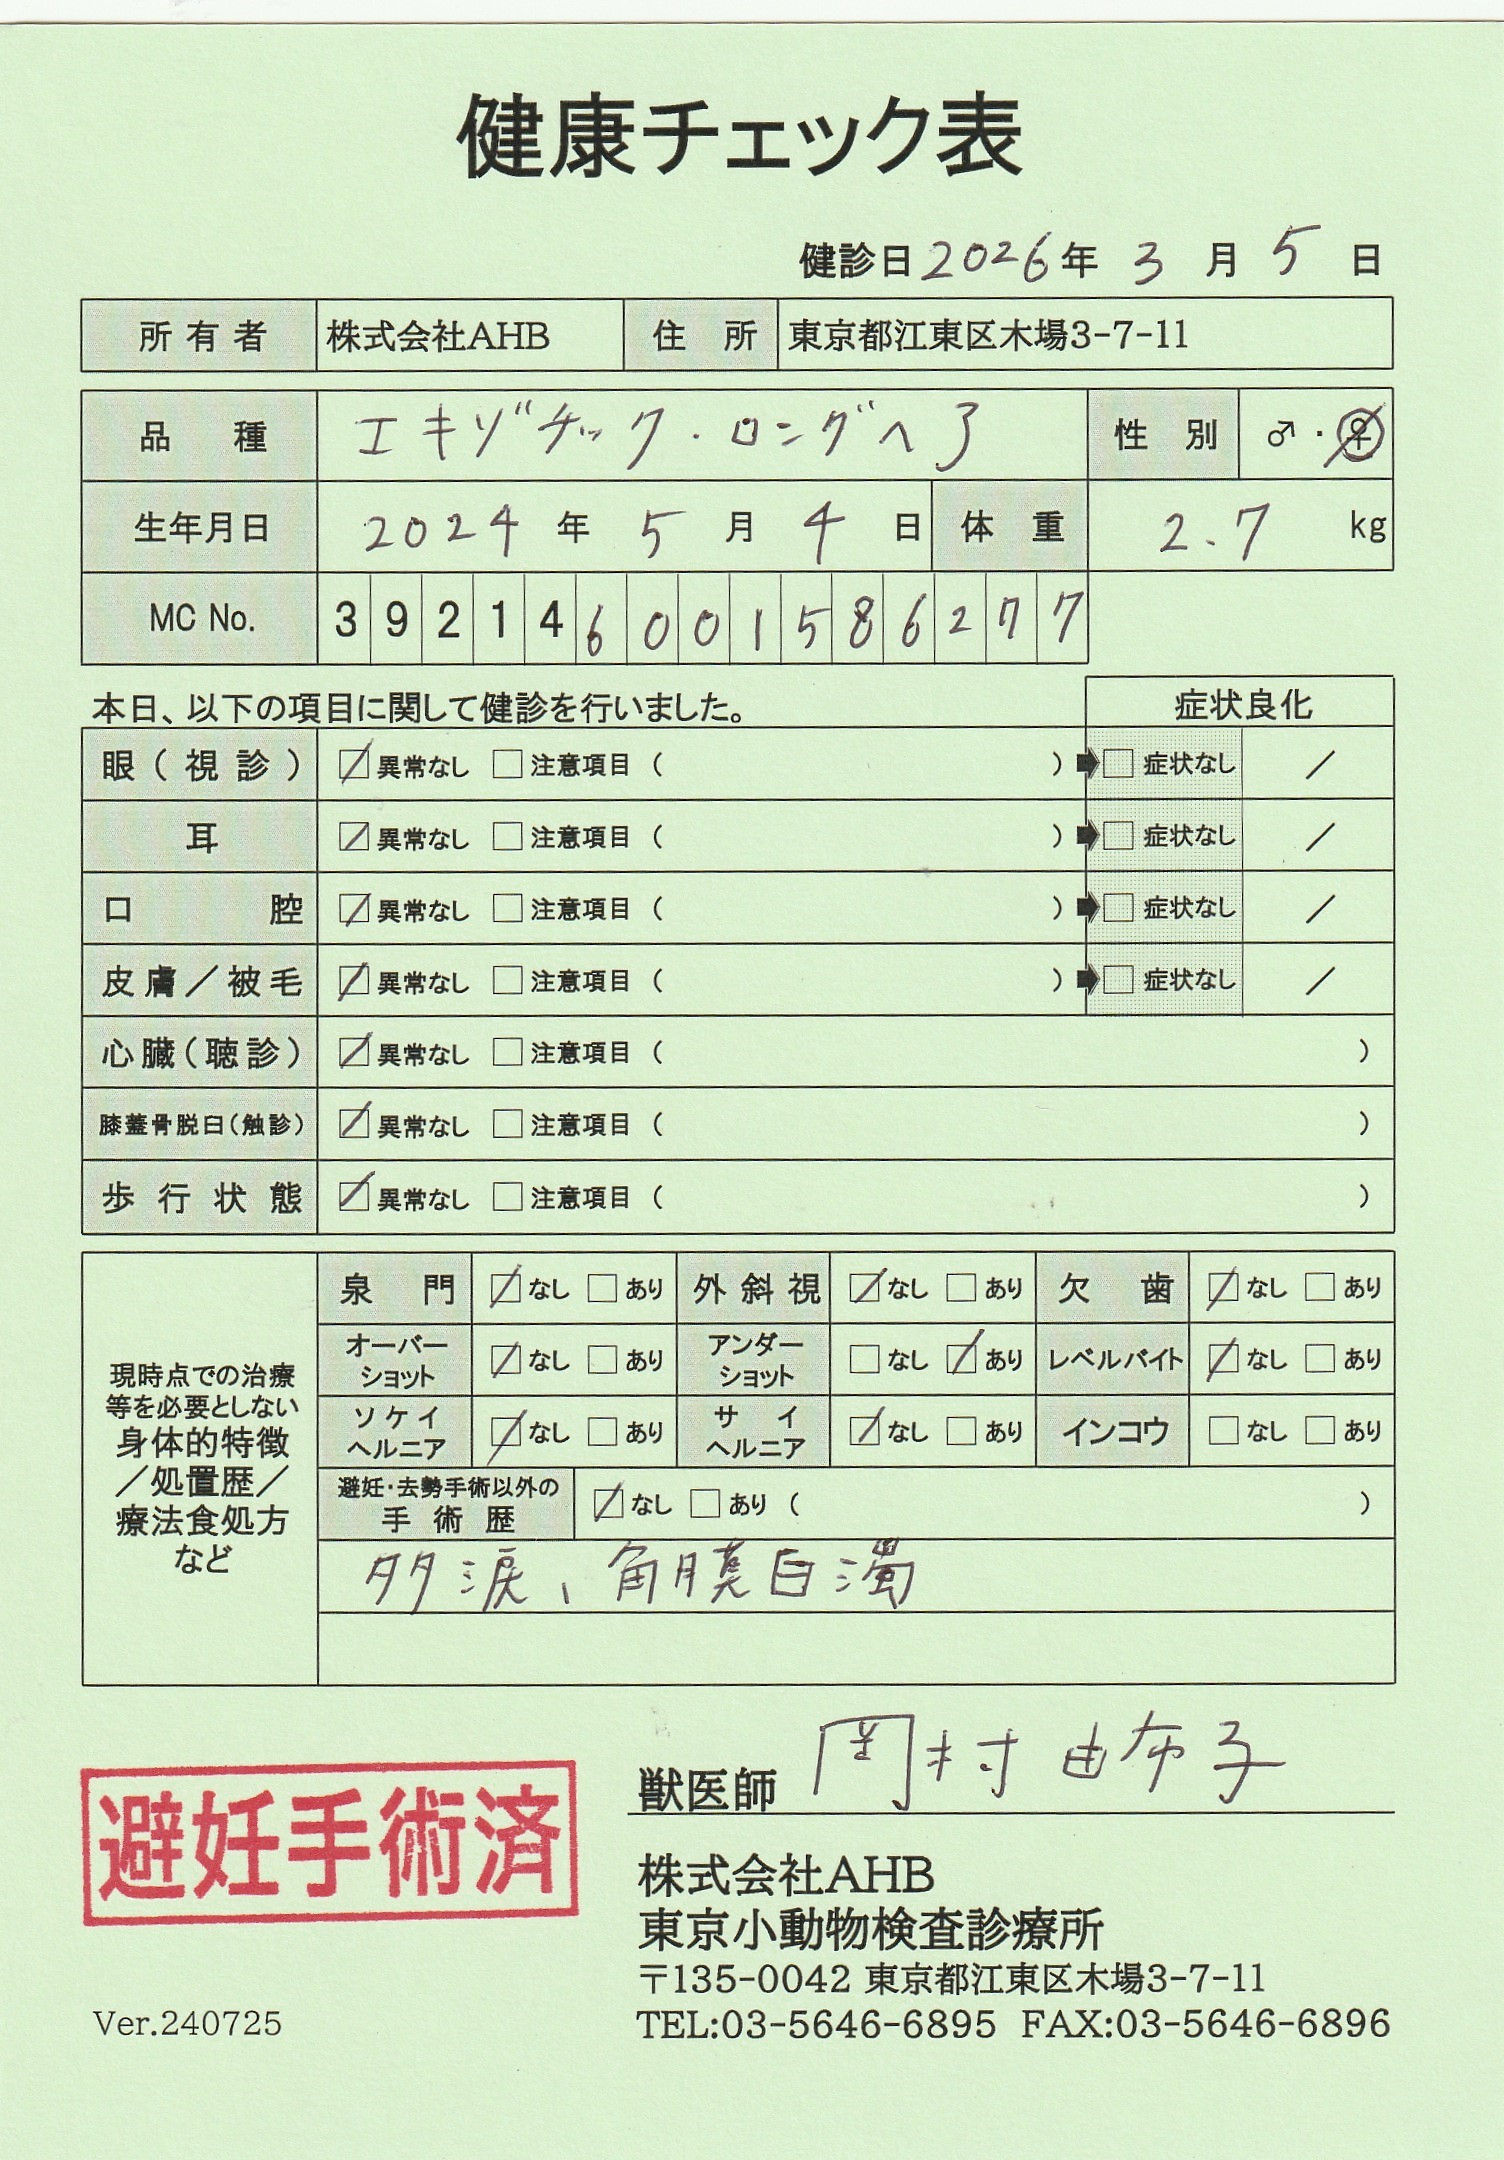 健康チェック表
健診日 2026 年 3 月 5 日
所有者 株式会社AHB 住所 東京都江東区木場3-7-11
品種 エキゾチック・ロングヘア 性別 ♂・♀
生年月日 2024 年 5 月 4 日 体重 2.7 kg
MC No. 3 9 2 1 4 6 0 0 1 5 8 6 2 7 7
本日、以下の項目に関して健診を行いました。 症状良化
眼(視診) ☑異常なし □注意項目 ( ) ➡ □症状なし /
耳 ☑異常なし □注意項目 ( ) ➡ □症状なし /
口腔 ☑異常なし □注意項目 ( ) ➡ □症状なし /
皮膚/被毛 ☑異常なし □注意項目 ( ) ➡ □症状なし /
心臓(聴診) ☑異常なし □注意項目 ( )
膝蓋骨脱臼(触診) ☑異常なし □注意項目 ( )
歩行状態 ☑異常なし □注意項目 ( )
現時点での治療
等を必要としない
身体的特徴
/処置歴/
療法食処方
など
泉門 ☑なし □あり 外斜視 ☑なし □あり 欠歯 ☑なし □あり
オーバーショット ☑なし □あり アンダーショット □なし ☑あり レベルバイト ☑なし □あり
ソケイヘルニア ☑なし □あり サイヘルニア ☑なし □あり インコウ □なし □あり
避妊・去勢手術以外の手術歴 ☑なし □あり ( )
多涙、角膜白濁
獣医師 岡村 由布子
避妊手術済
株式会社AHB
東京小動物検査診療所
〒135-0042 東京都江東区木場3-7-11
TEL:03-5646-6895 FAX:03-5646-6896
Ver.240725